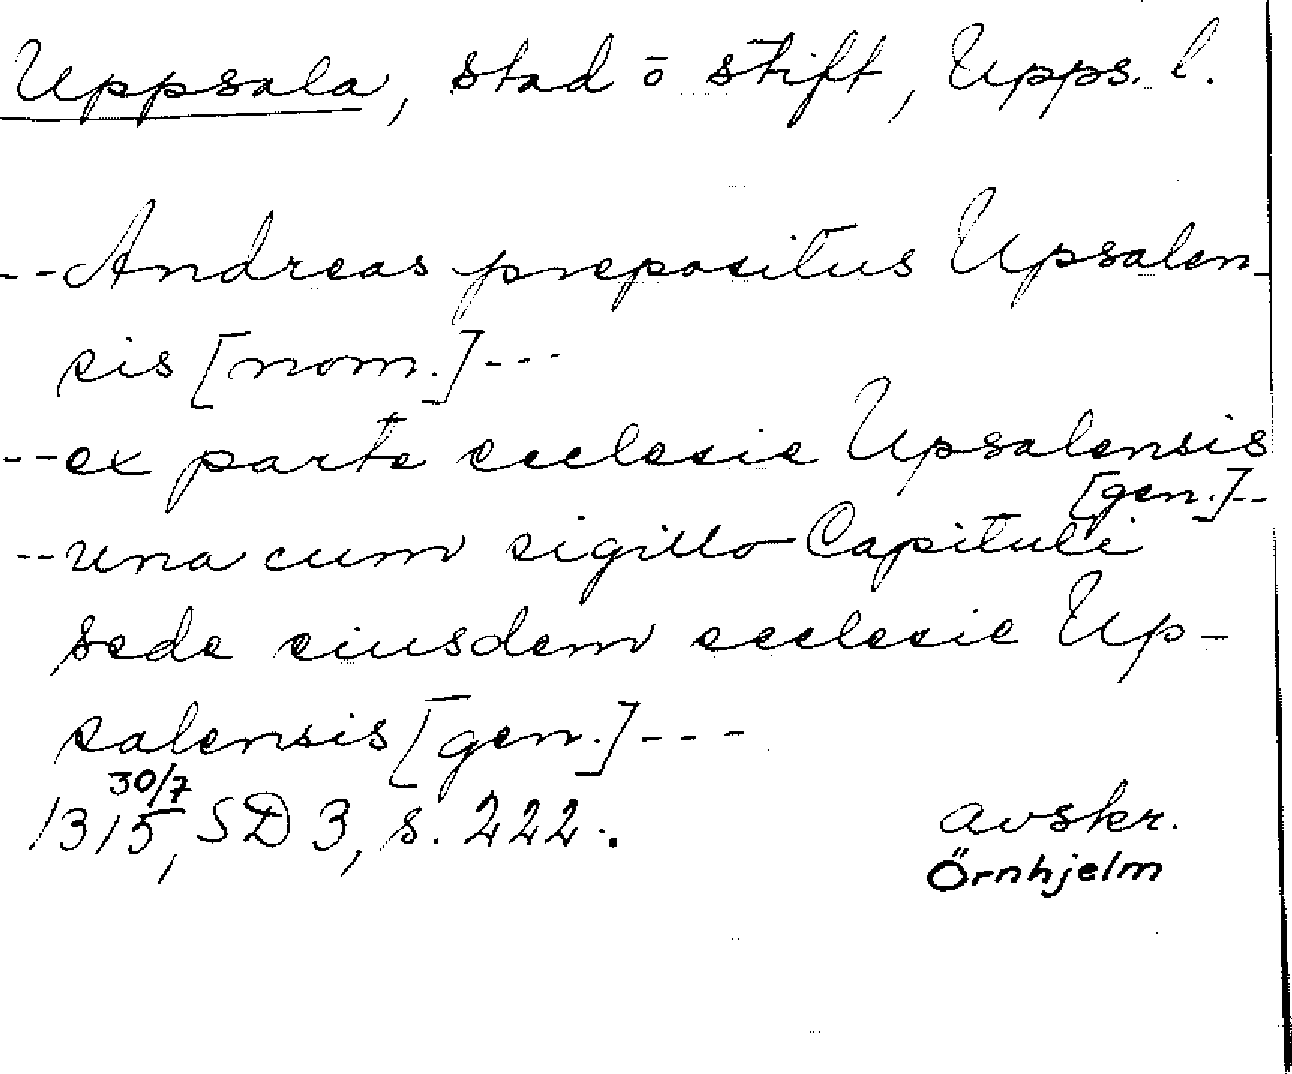 Uppsala, stad ō stift, Upps. l.
--Andreas prepositus Upsalen-
sis [nom.]---
--ex parte ecclesie Upsalensis
[gen.]--
--una cum sigillo Capituli
sede eiusdem ecclesie Up-
salensis [gen.]---
30/7
1315, SD 3, s. 222.
avskr.
Örnhjelm